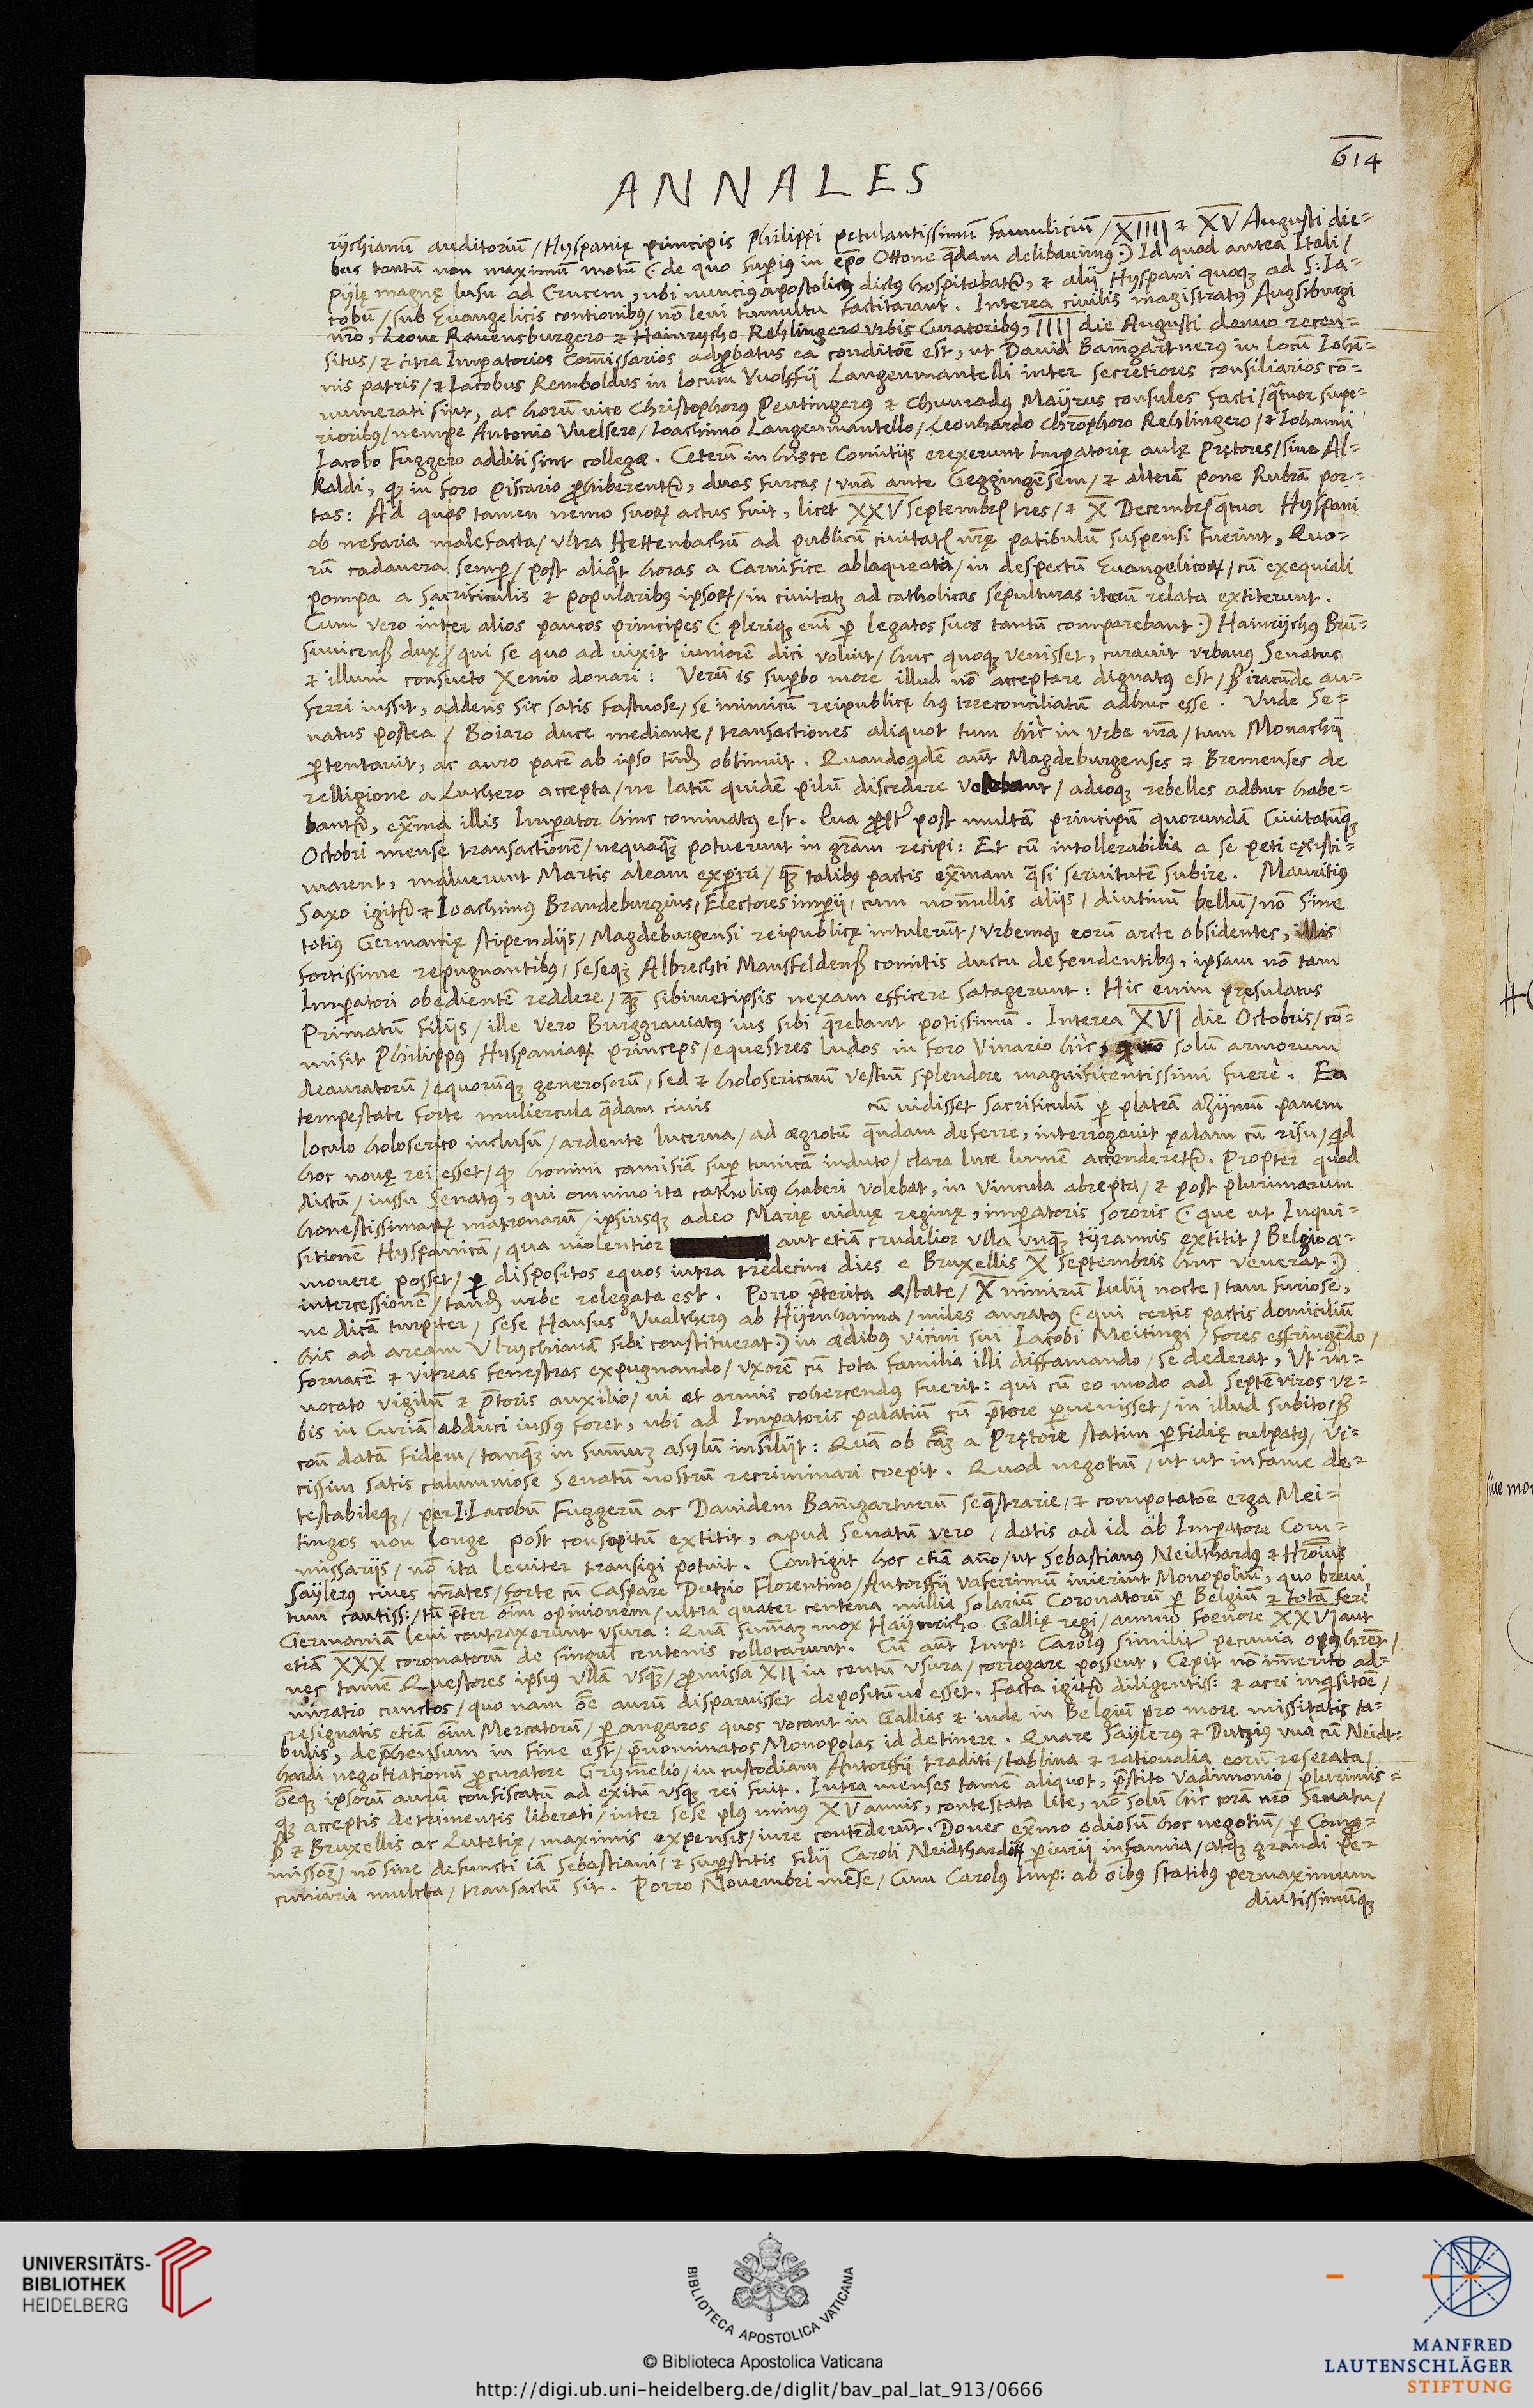 614
ANNALES
rijchianũ auditoriũ / Hyspanię principis Philippi petulantissimũ famulicium / XIIII & XV Augusti die=
bus tantũ non maximũ motũ (: de quo supius in epo Ottone qdam delibauimus :) Id quod antea Itali /
pijlę magnę lusu ad Crucem, ubi nuncius apostolicus dictus hospitabat, & alij Hyspani quoq ad S: Ia=
cobũ / sub Euangelicis contionibus / nõ leui tumultu factitarant. Interea ciuilis magistratus Augsburgi
nro, Leone Rauensburgero & Hainrijcho Rehlingero urbis Curatoribus, IIII die Augusti denuo recen=
situs / & citra Impatorios Comissarios adprobatus ea conditoe est, ut Dauid Bamgartnerus in locũ Iohan=
nis patris / & Iacobus Remboldus in locum Vuolffij Langenmantelli inter secretiores consiliarios cõ=
numerati sint, ac horũ uice Christophorus Peutingerus & Chunradus Maijrus consules facti / qtuor supe=
rioribus / nempe Antonio Vuelsero / Ioachimo Langenmantello / Leonhardo Chrophoro Rehlingero / & Iohanni
Iacobo Fuggero additi sint collegæ. Ceterũ in hisce Comitijs erexerunt Imperatorię aulę Prętores / siue Al=
kaldi, q in foro Piscario prohiberent, duas furcas / unã ante Geggingensem / & alterã pone Rubrã por=
tas: Ad quas tamen nemo suoꝝ actus fuit, licet XXV Septembris tres / & X Decembris qtuor Hyspani
ob nefaria malefacta / ultra Hettenbachũ ad publicũ ciuitatis nrę patibulũ suspensi fuerint, Quo=
rũ cadauera semper / post aliqt horas a Carnifice ablaqueata / in despectũ Euangelicoꝝ / cũ exequiali
pompa a sacrificulis & popularibus ipsoꝝ / in ciuitatẽ ad catholicas sepulturas iterũ relata extiterunt.
Cum vero inter alios paucos principes (: pleriq eni per legatos suos tantũ comparebant :) Hainrijchus Brun=
suuicensis dux / qui se quo ad uixit iuniorẽ dici voluit / huc quoq venisset, curauit urbanus Senatus
& illum consueto Xenio donari: Verũ is superbo more illud nõ acceptare dignatus est / sed iracunde au=
ferri iussit, addens sic satis fastuose / se inimicũ reipublicę hus irreconciliatũ adhuc esse. Unde Se=
natus postea / Boiaro duce mediante / transactiones aliquot tum hic in Urbe nra / tum Monachij
pertentauit, ac auro pacẽ ab ipso tandẽ obtinuit. Quandoqdẽ aut Magdeburgenses & Bremenses de
relligione a Luthero accepta / ne latũ quidẽ pilũ discedere volebant / adeoq rebelles adhuc habe=
bant, extrema illis Imperator hinc cominatus est. Qua propter post multã principũ quorundã Ciuitatũq
Octobri mense transactionẽ / nequaq potuerunt in gram recipi: Et cũ intollerabilia a se peti existi=
marent, maluerunt Martis aleam experiri / q talibus pactis extremam qsi seruitutẽ subire. Mauritius
Saxo igitur & Ioachimus Brandeburgius / Electores imperij / cum nonnullis alijs / diutinũ bellũ / nõ sine
totius Germanię stipendijs / Magdeburgensi reipublicę intulerũt / urbemq eorũ arcte obsidentes, illis
fortissime repugnantibus / seseq Albrechti Mansfeldensis comitis ductu defendentibus, ipsam nõ tam
Imperatori obedientẽ reddere / q sibimetipsis nexam efficere satagerunt: Hic enim pręsulatus
Primatũ filijs / ille vero Burggrauiatus ius sibi qrebant potissimũ. Interea XVI die Octobris / cõ=
misit Philippus Hyspaniaꝝ princeps / equestres ludos in foro Vinario hic, q nõ solũ armorum
deauratorũ / equorũq generosorũ, sed & holosericarũ vestiũ splendore magnificentissimi fuere. Ea
tempestate forte muliercula qdam ciuis cũ uidisset sacrificulũ per plateã azijmũ panem
loculo holoserico inclusũ / ardente lucerna / ad ægrotũ qndam deferre, interrogauit palam cũ risu / qd
hoc nouę rei esset / q homini camisiã super tunicã induto / clara luce lumẽ accenderet. Propter quod
dictũ / iussu Senatus, qui omnino ita catholicus haberi volebat, in vincula abrepta / & post plurimarum
honestissimaꝝ matronarũ / ipsiusq adeo Marię uiduę reginę, imperatoris sororis (: que ut Inqui=
sitionẽ Hyspanicã / qua uiolentior aut etiã crudelior ulla unq tijrannis extitit / Belgio a=
mouere posset / per dispositos equos intra tredecim dies e Bruxellis X Septembris huc venerat :)
intercessionẽ / tandẽ urbe relegata est. Porro pterita æstate / X nimirũ Iulij nocte / tam furiose,
ne dicã turpiter / sese Hansus Vualtherus ab Hijrnhaima / miles auratus (: qui certis pactis domiciliũ
hic ad aream Ulrychianã sibi constituerat :) in ædibus vicini sui Iacobi Meitingi / fores effringẽdo /
fornacẽ & vitreas fenestras expugnando / uxorẽ cũ tota familia illi diffamando / se dederat, Ut in=
uocato vigilũ & ptoris auxilio / ui et armis cohercendus fuerit: qui cũ eo modo ad Septẽuiros ur=
bis in Curiã abduci iussus foret, ubi ad Imperatoris palatiũ cũ ptore peruenisset / in illud subito / &
coũ datã fidem / tanq in summũ asylũ insilijt: Quã ob cãm a Prętore statim perfidię culpatus, vi=
cissim satis calumniose Senatũ nostrũ recriminari coepit. Quod negotiũ / ut ut infame de=
testabileq / per I: Iacobũ Fuggerũ ac Dauidem Bamgartnerũ seqstrarie / & compotatoe erga Mei=
tingos non longe post consopitũ extitit, apud Senatũ vero / datis ad id ab Impatore Com=
missarijs / nõ ita leuiter transigi potuit. Contigit hoc etiã ano / ut Sebastianus Neidthardus & Hroius
Saijlerus ciues nrates / forte cũ Caspare Dutzio Florentino / Antorffij vaferrimũ inierint Monopoliũ, quo breui,
tum cautiss: / tũ pter oim opinionem / ultra quater centena millia solariũ Coronatorũ per Belgiũ & totã feri
Germaniã leui contraxerunt usura: Quam summã mox Haijnricho Gallię regi / annuo foenore XXVI aut
etiã XXX coronatorũ de singul centenis collocarunt. Cũ aut Imp: Carolus similiter pecunia opus hret /
nec tamẽ Quęstores ipsius ullã usq / promissa XII in centũ usura / corrogare possent, Cepit nõ imerito ad=
miratio cunctos / quo nam oe aurũ disparuisset depositũue esset. Facta igitur diligentiss: & acri inqsitoe /
resignatis etiã oim Mercatorũ / per angaros quos vocant in Gallias & inde in Belgiũ pro more missitatis ta=
bulis, deprehensum in fine est / pnominatos Monopolas id detinere. Quare Saijlerus & Dutzius una cũ Neidt=
hardi negotiationũ procuratore Grijmelio / in custodiam Antorffij traditi / tablina & rationalia eorũ reserata /
oẽq ipsorũ aurũ confiscatũ ad exitũ usq rei fuit. Intra menses tamẽ aliquot, pstito vadimonio / plurimis=
q acceptis detrimentis liberati / inter sese plus minus XV annis, contestata lite, nõ solũ hic corã nro Senatu /
sed & Bruxellis ac Lutetię / maximis expensis / iure contenderũt. Donec extremo odiosũ hoc negotiũ / per Compro=
missoꝝ / nõ sine defuncti iã Sebastiani / & superstitis filij Caroli Neidthardi periurij infamia / atq grandi pe=
cuniaria mulcta / transactũ sit. Porro Nouembri mẽse / Cum Carolus Imp: ab oibus statibus permaximum
diutissimũq
siue mon
UNIVERSITÄTS-
BIBLIOTHEK
HEIDELBERG
BIBLIOTECA APOSTOLICA VATICANA
© Biblioteca Apostolica Vaticana
http://digi.ub.uni-heidelberg.de/diglit/bav_pal_lat_913/0666
MANFRED
LAUTENSCHLÄGER
STIFTUNG